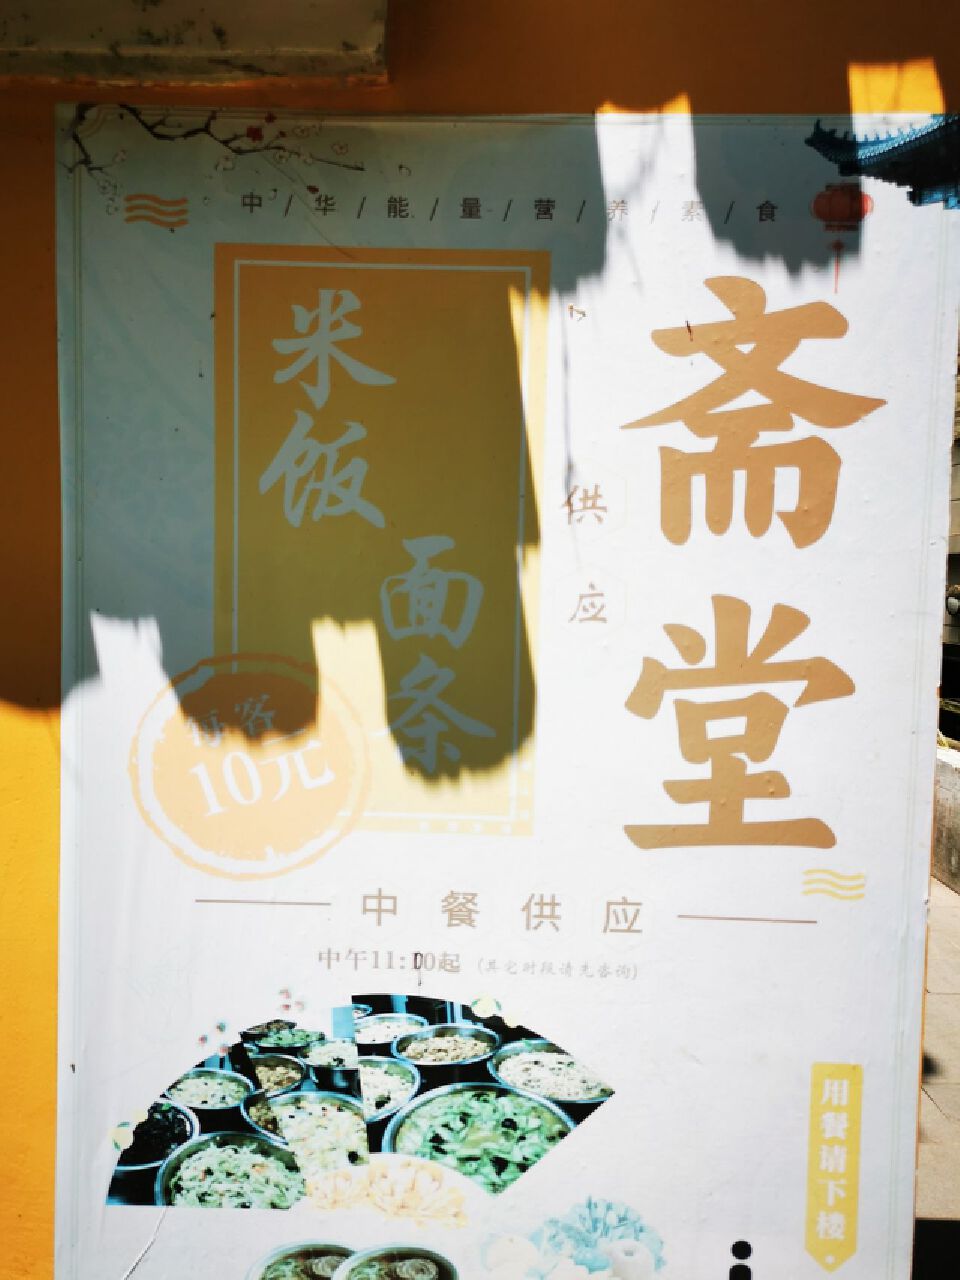 中/华/能/量/营/养/素/食
斋堂
供应
米饭
面条
每客
10元
中餐供应
中午11:00起 (其它时段请先咨询)
用餐请下楼